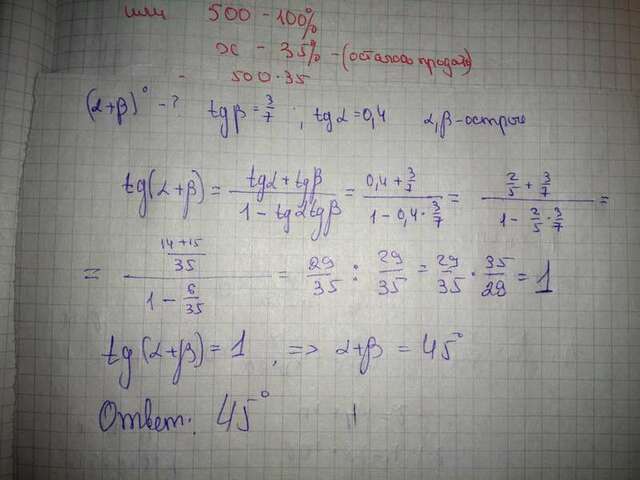 или 500 - 100%
x - 35% - (осталось продать)
- 500·35
(α+β)° - ? tg β = 3/7 ; tg α = 0,4 α, β - острые
tg(α+β) = (tg α + tg β)/(1 - tg α tg β) = (0,4 + 3/7)/(1 - 0,4·3/7) = (2/5 + 3/7)/(1 - 2/5·3/7) =
= ((14+15)/35)/(1 - 6/35) = 29/35 : 29/35 = 29/35 · 35/29 = 1
tg(α+β) = 1 , => α+β = 45°
Ответ: 45°